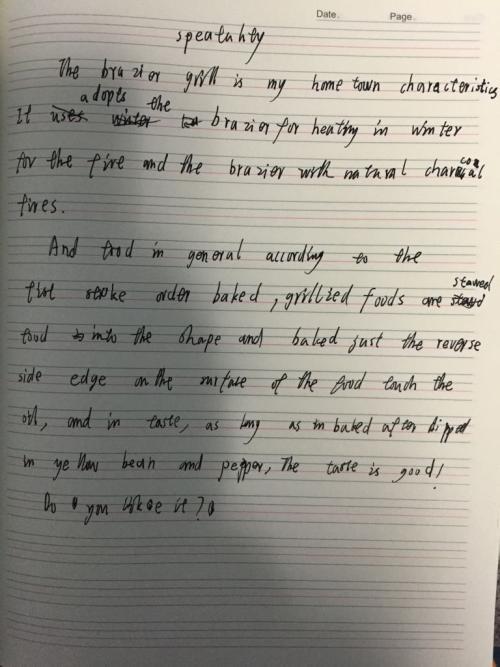 Date. Page.
speatuhty
The brazier grill is my home town characteristics
It adopts the brazier for heating in winter
for the fire and the brazier with natural charcoal
fires.
And food in general according to the
first stroke order baked, grillized foods are stawed
food into the shape and baked just the reverse
side edge on the surface of the food touch the
oil, and in taste, as long as in baked after dipped
in yellow bean and pepper, The taste is good!
Do you like it?